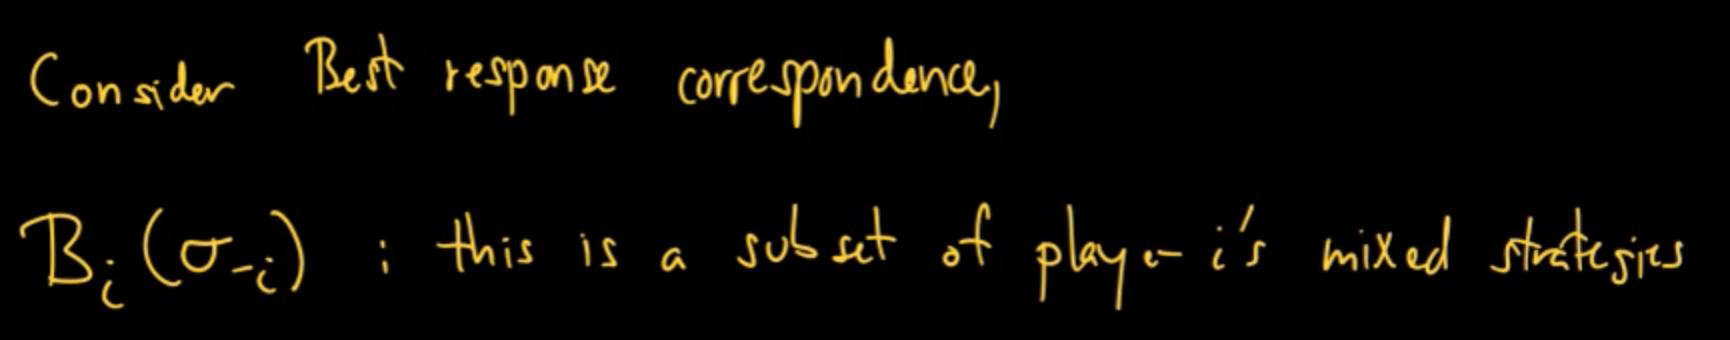 Consider Best response correspondence,
B_i(σ_{-i}) : this is a subset of player i's mixed strategies